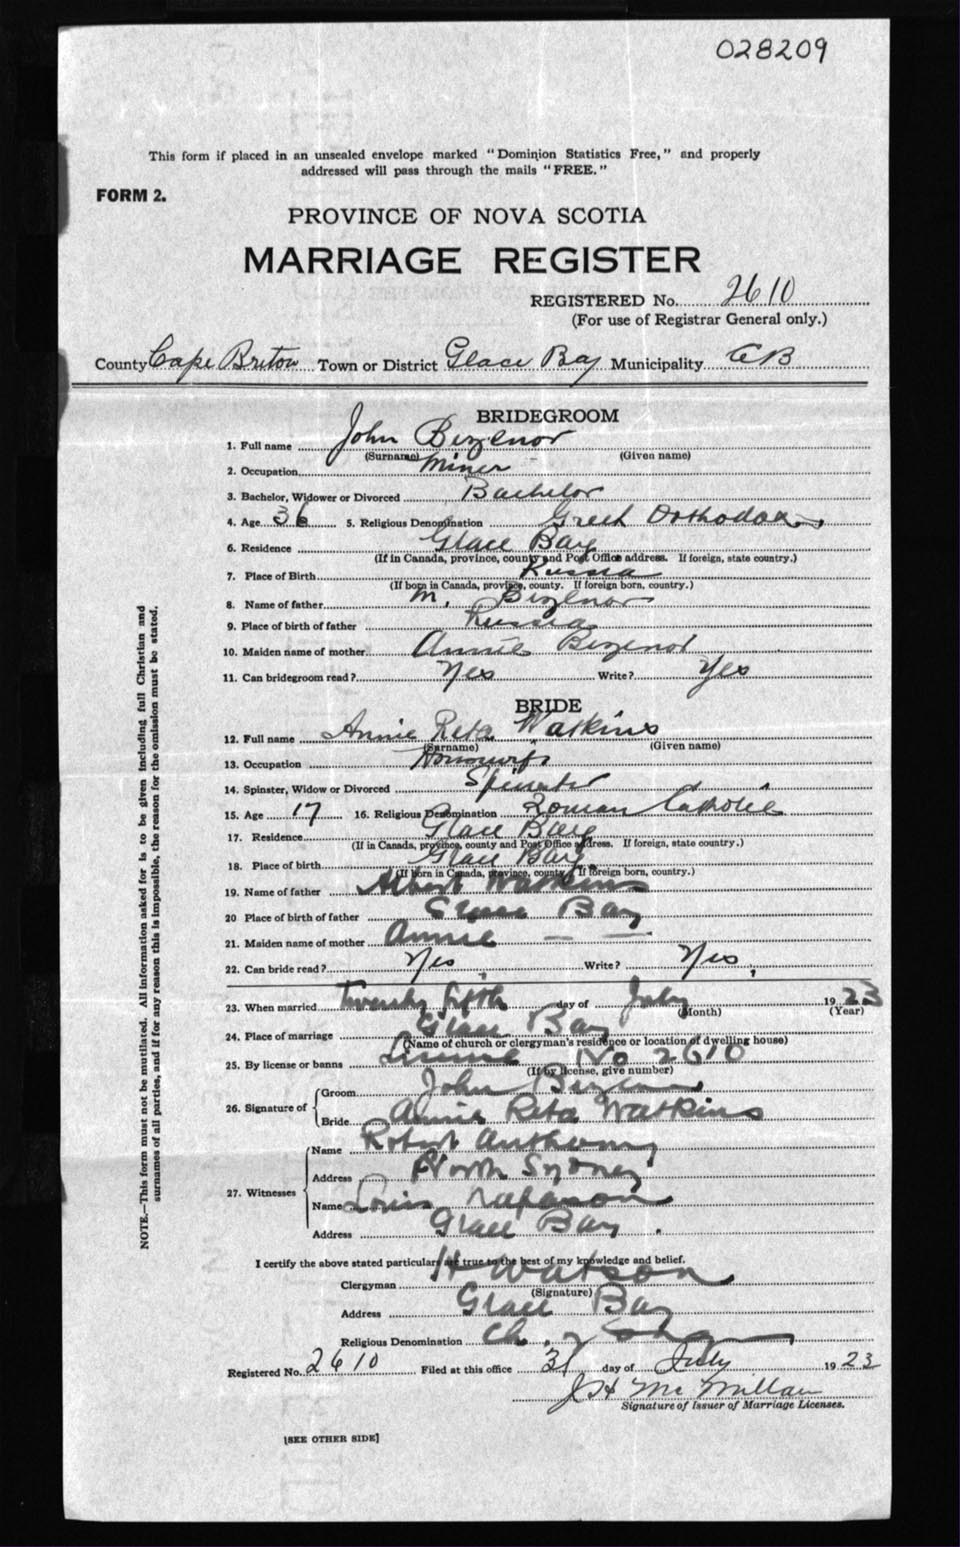 028209
This form if placed in an unsealed envelope marked "Dominion Statistics Free," and properly
addressed will pass through the mails "FREE."
FORM 2.
PROVINCE OF NOVA SCOTIA
MARRIAGE REGISTER
REGISTERED No. 2610
(For use of Registrar General only.)
County Cape Breton Town or District Glace Bay Municipality CB
BRIDEGROOM
1. Full name John Bezenor
(Surname) (Given name)
2. Occupation Miner
3. Bachelor, Widower or Divorced Bachelor
4. Age 36 5. Religious Denomination Greek Orthodox
6. Residence Glace Bay
(If in Canada, province, county and Post Office address. If foreign, state country.)
7. Place of Birth Russia
(If born in Canada, province, county. If foreign born, country.)
8. Name of father M. Bezenor
9. Place of birth of father Russia
10. Maiden name of mother Annie Bezenor
11. Can bridegroom read? Yes Write? Yes
BRIDE
12. Full name Annie Reta Watkins
(Surname) (Given name)
13. Occupation Housewife
14. Spinster, Widow or Divorced Spinster
15. Age 17 16. Religious Denomination Roman Catholic
17. Residence Glace Bay
(If in Canada, province, county and Post Office address. If foreign, state country.)
18. Place of birth Glace Bay
(If born in Canada, province, county. If foreign born, country.)
19. Name of father Albert Watkins
20 Place of birth of father Glace Bay
21. Maiden name of mother Annie — —
22. Can bride read? Yes Write? Yes
23. When married Twenty fifth day of July 1923
(Month) (Year)
24. Place of marriage Glace Bay
(Name of church or clergyman's residence or location of dwelling house)
25. By license or banns License No 2610
(If by license, give number)
26. Signature of Groom John
Bride Annie Reta Watkins
27. Witnesses Name Robert Anthony
Address North Sydney
Name Louis
Address Glace Bay.
I certify the above stated particulars are true to the best of my knowledge and belief.
Clergyman H Watson
(Signature)
Address Glace Bay
Religious Denomination Ch.
Registered No. 2610 Filed at this office 31 day of July 1923
J H McMillan
Signature of Issuer of Marriage Licenses.
[SEE OTHER SIDE]
NOTE.—This form must not be mutilated. All information asked for is to be given including full Christian and
surnames of all parties, and if for any reason this is impossible, the reason for the omission must be stated.